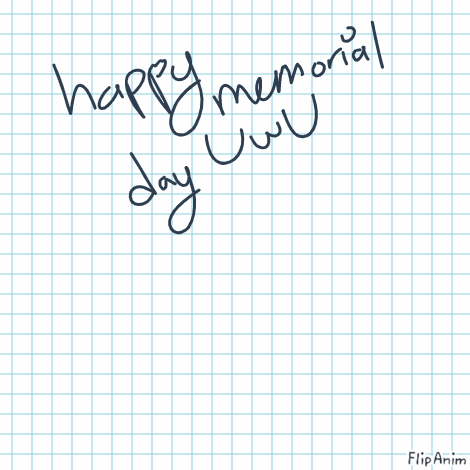 happy memorial
day UwU
FlipAnim